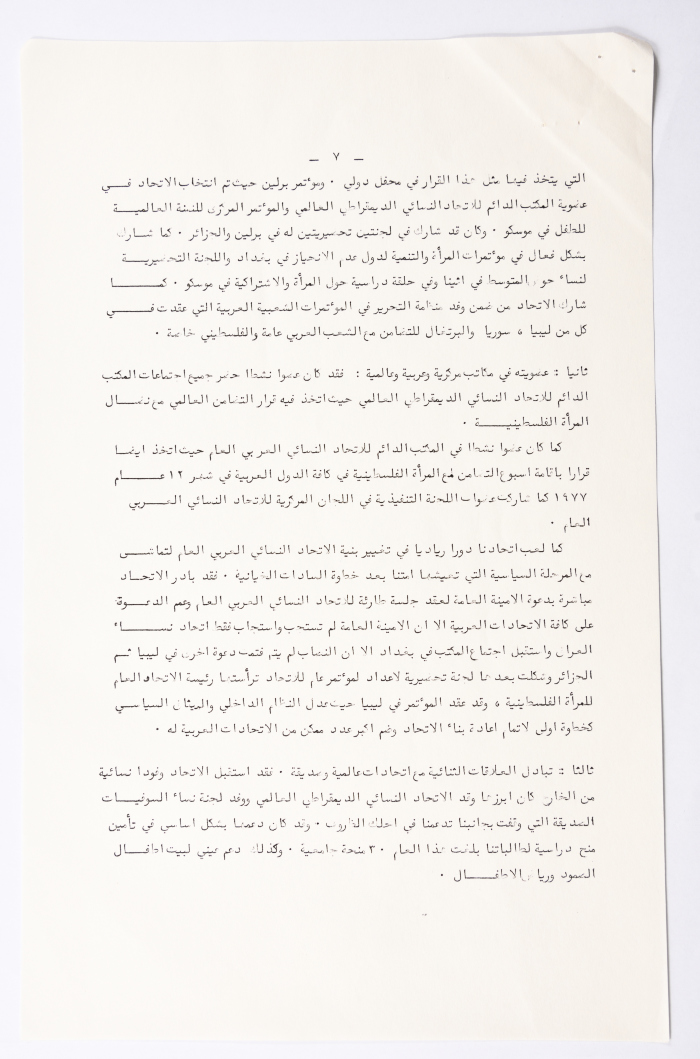 – ٧ –
التي يتخذ فيها مثل هذا القرار في محفل دولي ٠ ومؤتمر برلين حيث تم انتخاب الاتحاد فــي
عضوية المكتب الدائم للاتحاد النسائي الديمقراطي العالمي والمؤتمر المركزى للسنة العالميــة
للطفل في موسكو ٠ وكان قد شارك في لجنتين تحضيريتين له في برلين والجزائر ٠ كما شــارك
بشكل فعال في مؤتمرات المرأة والتنمية لدول عدم الانحياز في بغداد واللجنة التحضيريــة
لنساء حوض المتوسط في اثينا وفي حلقة دراسية حول المرأة والاشتراكية في موسكو ٠ كمــــا
شارك الاتحاد من ضمن وفد منظمة التحرير في المؤتمرات الشعبية العربية التي عقدت فــي
كل من ليبيا ، سوريا والبرتغال للتضامن مع الشعب العربي عامة والفلسطيني خاصة ٠
ثانيا : عضويته في مكاتب مركزية وعربية وعالمية : فقد كان عضوا نشطا حضر جميع اجتماعات المكتب
الدائم للاتحاد النسائي الديمقراطي العالمي حيث اتخذ فيه قرار التضامن العالمي مع نضــال
المرأة الفلسطينيـــة ٠
كما كان عضوا نشطا في المكتب الدائم للاتحاد النسائي العربي العام حيث اتخذ ايضا
قرارا باقامة اسبوع التضامن مع المرأة الفلسطينية في كافة الدول العربية في شهر ١٢ عـــام
١٩٧٧ كما شاركت عضوات اللجنة التنفيذية في اللجان المركزية للاتحاد النسائي العــربي
العام ٠
كما لعب اتحادنا دورا رياديا في تغيير بنية الاتحاد النسائي العربي العام لتماشــى
مع المرحلة السياسية التي تعيشها امتنا بعد خطوة السادات الخيانية ٠ فقد بادر الاتحــاد
مباشرة بدعوة الامينة العامة لعقد جلسة طارئة للاتحاد النسائي العربي العام وعمم الدعــوة
على كافة الاتحادات العربية الا ان الامينة العامة لم تستجب واستجاب فقط اتحاد نســـاء
العراق واستقبل اجتماع المكتب في بغداد الا ان النصاب لم يتم فتمت دعوة اخرى في ليبيا ثــم
الجزائر وشكلت بعدها لجنة تحضيرية لاعداد لمؤتمر عام للاتحاد ترأستها رئيسة الاتحاد العام
للمرأة الفلسطينية ، وقد عقد المؤتمر في ليبيا حيث عدل النظام الداخلي والميثاق السياســي
كخطوة اولى لاتمام اعادة بناء الاتحاد وضم اكبر عدد ممكن من الاتحادات العربية له ٠
ثالثا : تبادل العلاقات الثنائية مع اتحادات عالمية وصديقة ٠ فقد استقبل الاتحاد وفودا نسائية
من الخارج كان ابرزها وفد الاتحاد النسائي الديمقراطي العالمي ووفد لجنة نساء السوفيــات
الصديقة التي وقفت بجانبنا تدعمنا في احلك الظروف ٠ وقد كان دعمها بشكل اساسي في تأمين
منح دراسية لطالباتنا بلغت هذا العام ٣٠ منحة جامعية ٠ وكذلك دعم عيني لبيت اطفــال
الصمود ورياض الاطفـــال ٠